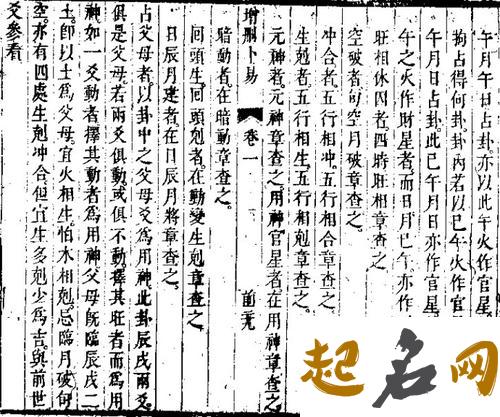 午年月日占卦亦以此午火作官星
狗占得何卦卦內若以巳午火作官
午月日占卦此巳午月日亦作官星
午之火作財星者而日月巳午亦作
旺相休囚者四時旺相章查之
空破者旬空月破章查之
冲合者五行相冲五行相合章查之
生尅者五行相生五行相尅章查之
元神者元神章查之用神官星者在用神章查之
增刪卜易
卷一
暗動者在暗動章查之
囘頭生囘頭尅者在動變生尅章查之
日辰月建者在日辰月將章查之
占父母者以卦中之父母爻爲用神此卦辰戌兩爻
俱是父母若兩爻俱動或俱不動擇其旺者而爲用
神如一爻動者擇其動者爲用神父母旣臨辰戌二
土卽以土爲父母宜火相生怕木相尅忌臨月破旬
空亦有四處生尅冲合但宜生多尅少爲吉與前世
爻參看
起名网